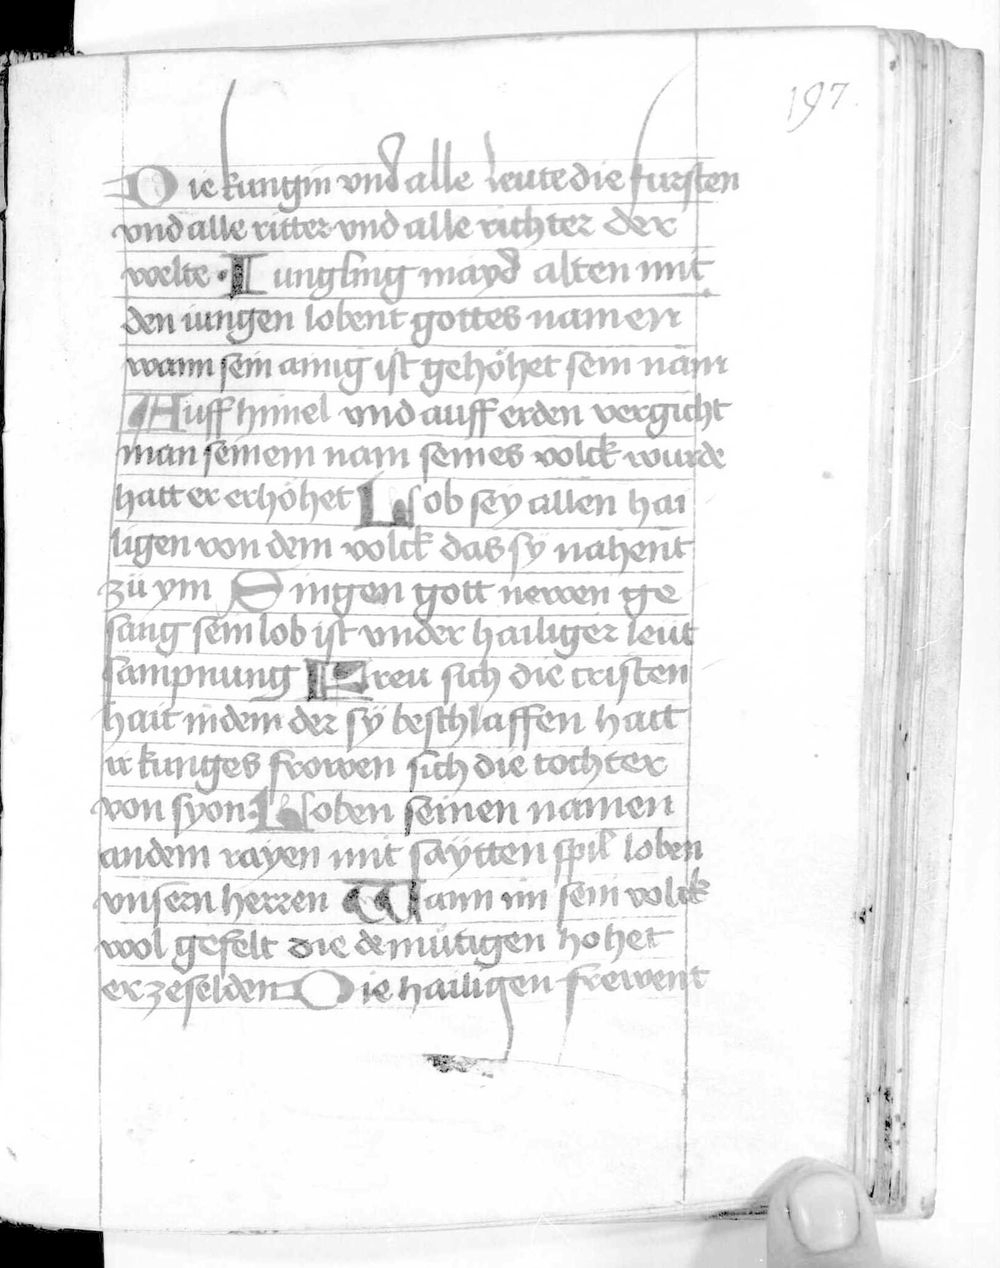 197.
Die kungin vnd alle leute die fursten
vnd alle ritter vnd alle richter der
welte · Iungling mayd alten mit
den iungen lobent gottes namen
wann sein ainig ist gehöhet sein nam
Auff himel vnd auff erden vergicht
man seinem nam seines volck wurde
hatt er erhöhet Lob sey allen hai
ligen von dem volck das sÿ nahent
zü ym Singen gott newen ge
sang sein lob ist vnder hailiger leüt
sampnung Freu sich die cristen
hait in dem der sÿ beschlaffen hatt
ir kunges frowen sich die tochter
von syon · Loben seinen namen
an dem rayen mit säÿtten spil loben
vnsern herren Wann im sein volck
wol gefelt die demütigen hohet
er ze selden Die hailigen frewent